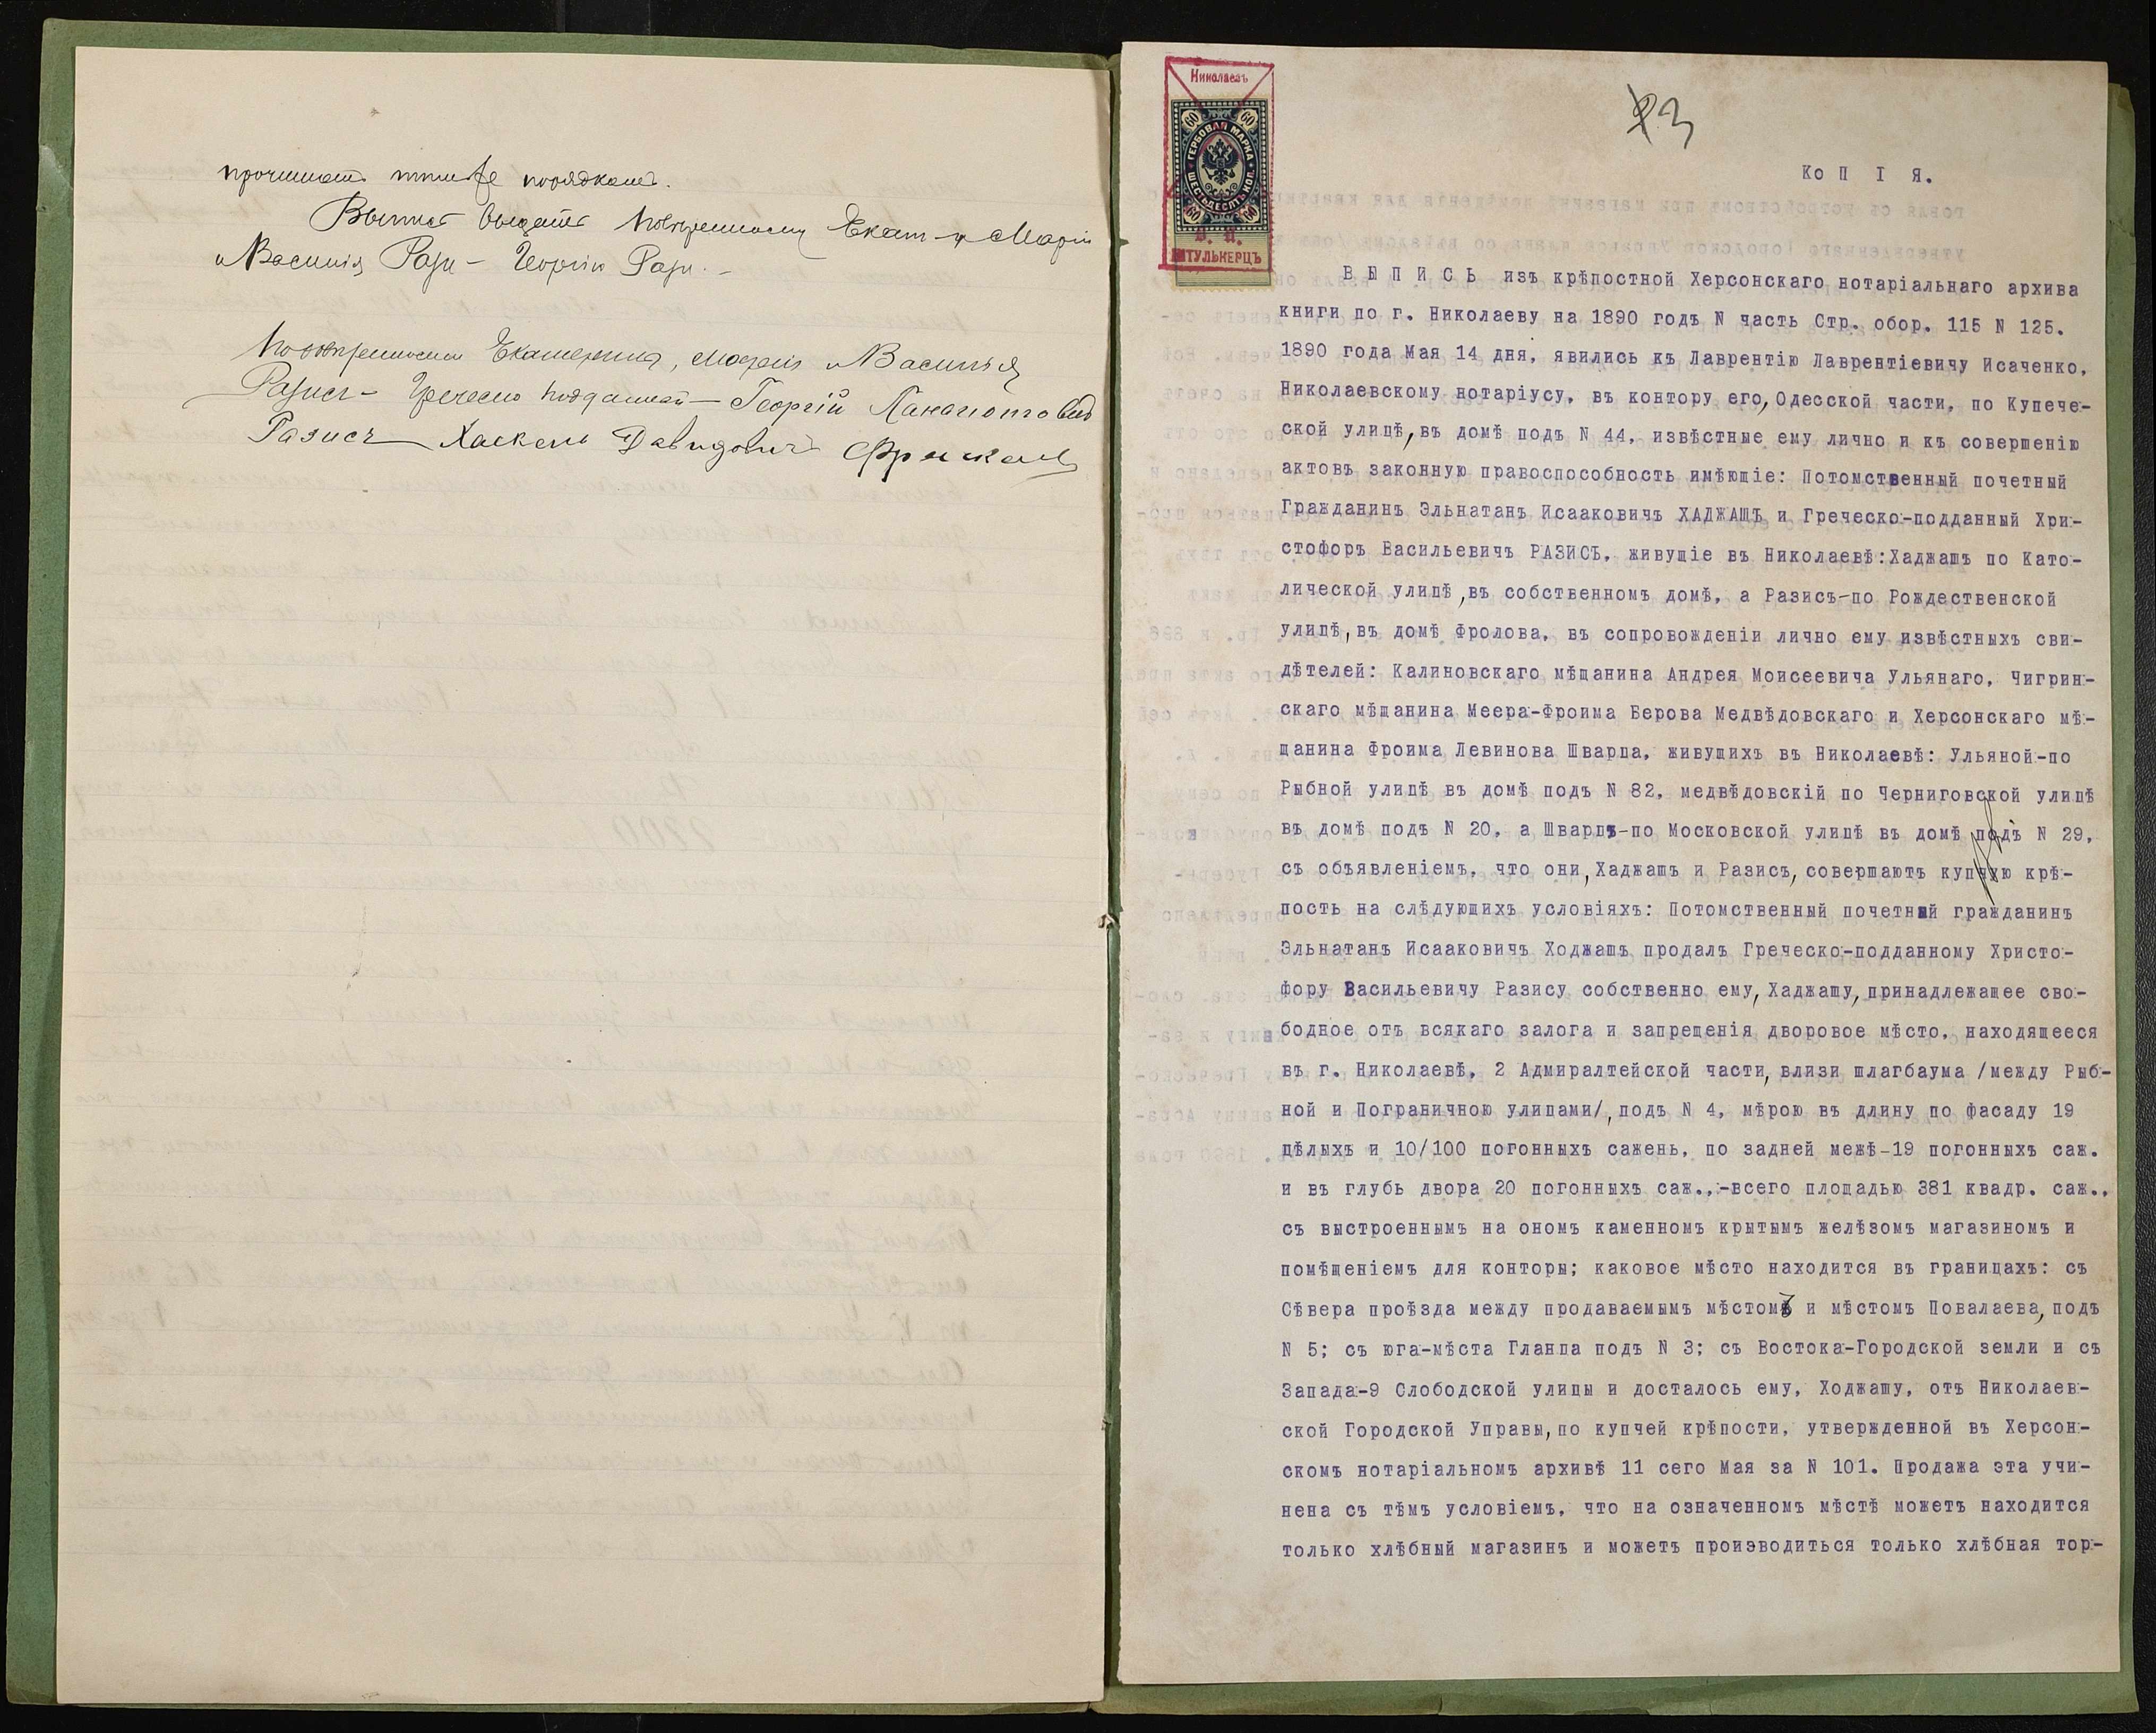 порядкомъ.
Выпись выдать повѣренному Екат. и Маріи
и Василія Рази - Георгію Рази. -
Повѣренный Екатерины, Маріи и Василія
Разисъ - Греческо подданный - Георгій Панагіотовъ
Разисъ Хаскель Давидовичъ
3
Ко П І Я.
Николаевъ
60 60
ГЕРБОВАЯ МАРКА
ШЕСТЬДЕСЯТЪ КОП.
60 60
ШТУЛЬКЕРЦЪ
В Ы П И С Ь изъ крѣпостной Херсонскаго нотаріальнаго архива
книги по г. Николаеву на 1890 годъ N часть Стр. обор. 115 N 125.
1890 года Мая 14 дня, явились къ Лаврентію Лаврентіевичу Исаченко,
Николаевскому нотаріусу, въ контору его, Одесской части, по Купече-
ской улицѣ, въ домѣ подъ N 44, извѣстные ему лично и къ совершенію
актовъ законную правоспособность имѣющіе: Потомственный почетный
Гражданинъ Эльнатанъ Исааковичъ ХАДЖАШЪ и Греческо-подданный Хри-
стофоръ Васильевичъ РАЗИСЪ, живущіе въ Николаевѣ: Хаджашъ по Като-
лической улицѣ, въ собственномъ домѣ, а Разисъ-по Рождественской
улицѣ, въ домѣ Фролова, въ сопровожденіи лично ему извѣстныхъ сви-
дѣтелей: Калиновскаго мѣщанина Андрея Моисеевича Ульянаго, Чигрин-
скаго мѣщанина Меера-Фроима Берова Медвѣдовскаго и Херсонскаго мѣ-
щанина Фроима Левинова Шварца, живущихъ въ Николаевѣ: Ульяной-по
Рыбной улицѣ въ домѣ подъ N 82, медвѣдовскій по Черниговской улицѣ
въ домѣ подъ N 20, а Шварцъ-по Московской улицѣ въ домѣ подъ N 29,
съ объявленіемъ, что они, Хаджашъ и Разисъ, совершаютъ купчую крѣ-
пость на слѣдующихъ условіяхъ: Потомственный почетный гражданинъ
Эльнатанъ Исааковичъ Ходжашъ продалъ Греческо-подданному Христо-
фору Васильевичу Разису собственно ему, Хаджашу, принадлежащее сво-
бодное отъ всякаго залога и запрещенія дворовое мѣсто, находящееся
въ г. Николаевѣ, 2 Адмиралтейской части, влизи шлагбаума /между Рыб-
ной и Пограничною улицами/, подъ N 4, мѣрою въ длину по фасаду 19
цѣлыхъ и 10/100 погонныхъ сажень, по задней межѣ-19 погонныхъ саж.
и въ глубь двора 20 погонныхъ саж.,-всего площадью 381 квадр. саж.,
съ выстроеннымъ на ономъ каменномъ крытымъ желѣзомъ магазиномъ и
помѣщеніемъ для конторы; каковое мѣсто находится въ границахъ: съ
Сѣвера проѣзда между продаваемымъ мѣстомъ и мѣстомъ Повалаева, подъ
N 5; съ юга-мѣста Гланца подъ N 3; съ Востока-Городской земли и съ
Запада-9 Слободской улицы и досталось ему, Ходжашу, отъ Николаев-
ской Городской Управы, по купчей крѣпости, утвержденной въ Херсон-
скомъ нотаріальномъ архивѣ 11 сего Мая за N 101. Продажа эта учи-
нена съ тѣмъ условіемъ, что на означенномъ мѣстѣ можетъ находится
только хлѣбный магазинъ и можетъ производиться только хлѣбная тор-